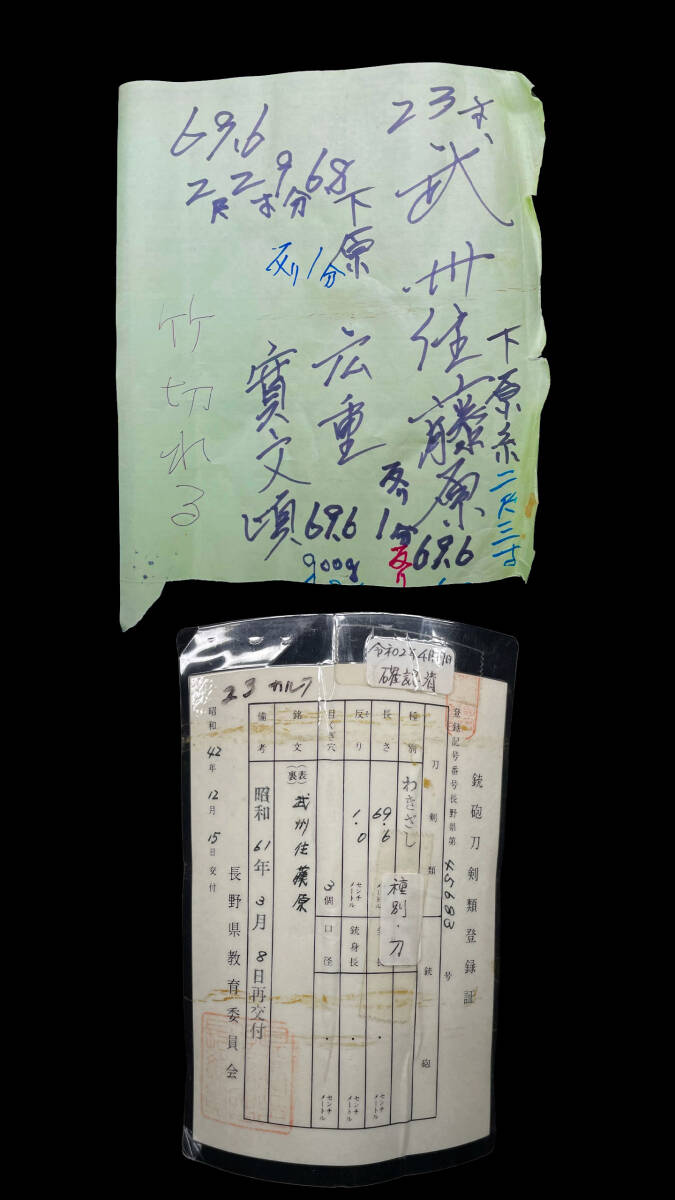 23才
武州住藤原
下原系
二尺三寸
反り
1分
反り
69.6
69.6
2尺2寸9分68
下原
宏重
反り1分
寛文頃
69.6
900g
竹切れる
令和02年4月
確認済
23カルラ
銃砲刀剣類登録証
登録記号番号長野県第45683号
刀剣類
銃砲
種別
わきざし
種別・刀
長さ
69.6
センチメートル
反り
1.0
センチメートル
銃身長
センチメートル
目くぎ穴
3個
口径
センチメートル
銘文
(表)
(裏)
武州住藤原
備考
昭和61年3月8日再交付
昭和42年12月15日交付
長野県教育委員会